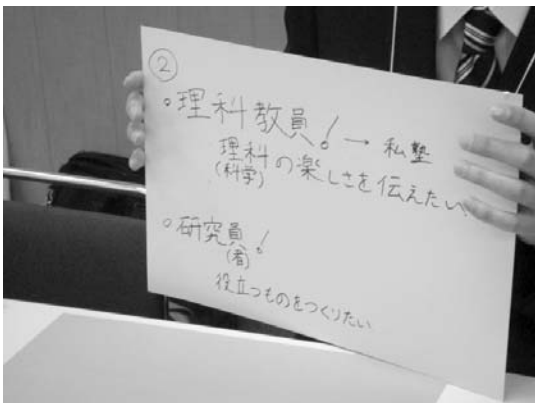 ②
◦理科教員! → 私塾
理科の楽しさを伝えたい
(科学)
◦研究員!
(者)
役立つものをつくりたい